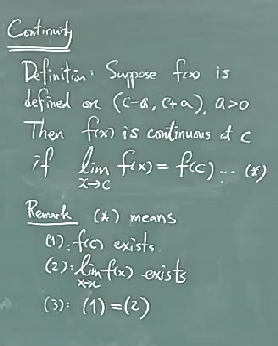 Continuity
Definition: Suppose f(x) is
defined on (c-a, c+a), a>0
Then f(x) is continuous at c
if lim f(x) = f(c) ... (*)
x→c
Remark (*) means
(1): f(c) exists.
(2): lim f(x) exists
x→c
(3): (1) = (2)